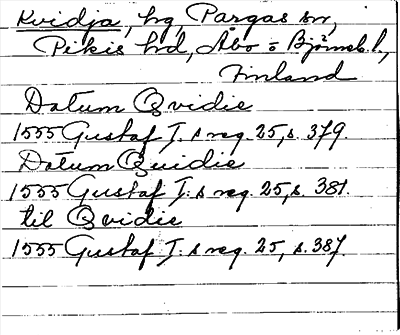 Kvidja, hg, Pargas sn,
Pikis hrd, Åbo o Björneb. l.,
Finland
Datum Qvidie
1555 Gustaf I. s reg. 25, s. 379
Datum Quidie
1555 Gustaf I. s reg. 25, s. 381.
til Qvidie
1555 Gustaf I. s reg. 25, s. 387.